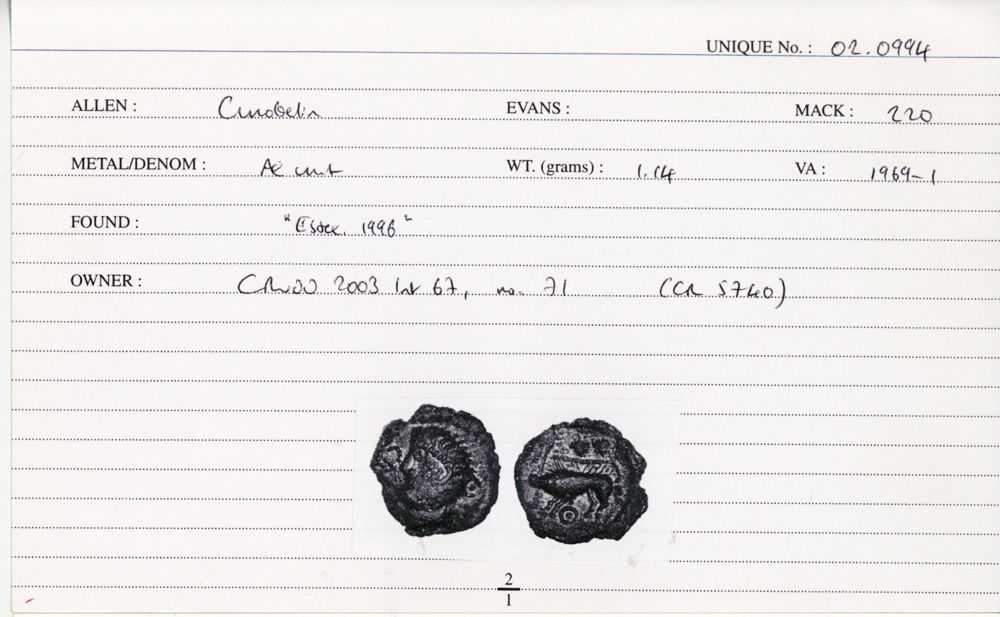 UNIQUE No. : 02.0994
ALLEN : Cunobelin EVANS : MACK : 220
METAL/DENOM : Æ unit WT. (grams) : 1.14 VA : 1969-1
FOUND : "Essex. 1996"
OWNER : 2003 67, no. 71 (CR 5740)
2
1